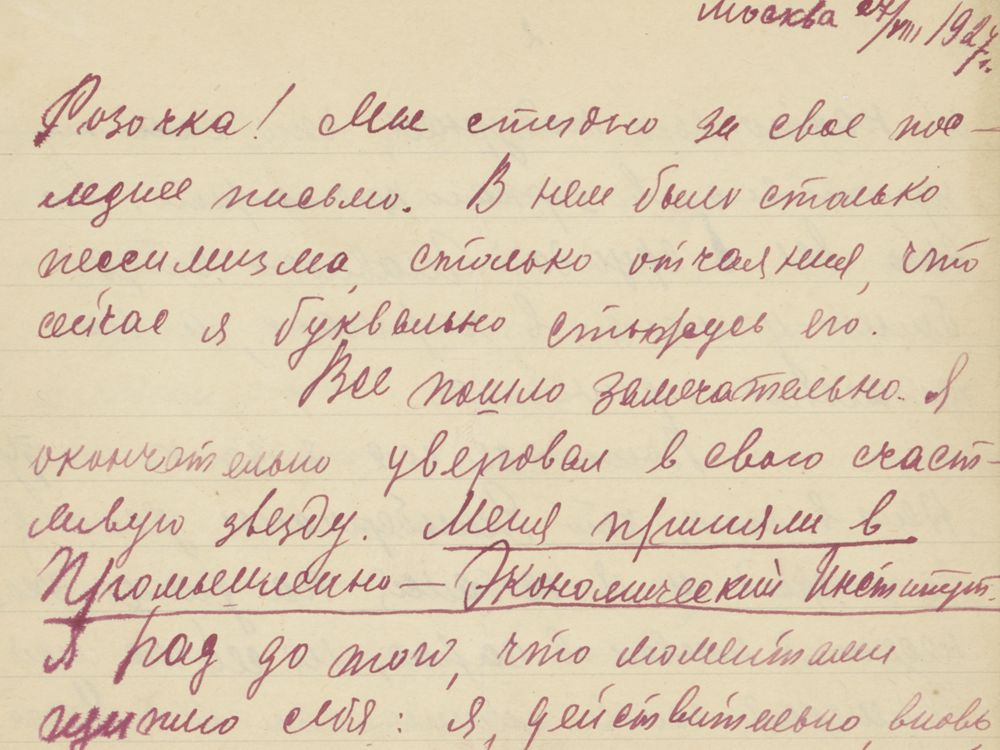 Москва 27/VIII 1927 г.
Розочка! Мне стыдно за свое пос-
леднее письмо. В нем было столько
пессимизма, столько отчаяния, что
сейчас я буквально стыжусь его.
Все пошло замечательно. Я
окончательно уверовал в свою счаст-
ливую звезду. Меня приняли в
Промышленно-Экономический Институт.
Я рад до того, что моментами
щипаю себя: я, действительно, вновь